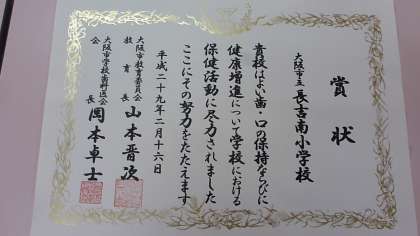 賞状
大阪市立 長吉南小学校
貴校はよい歯・口の保持ならびに
健康増進について学校における
保健活動に尽力されました
ここにその努力をたたえます
平成二十九年二月十六日
大阪市教育委員会
教育長 山本晋次
大阪市学校歯科医会
会長 岡本卓士